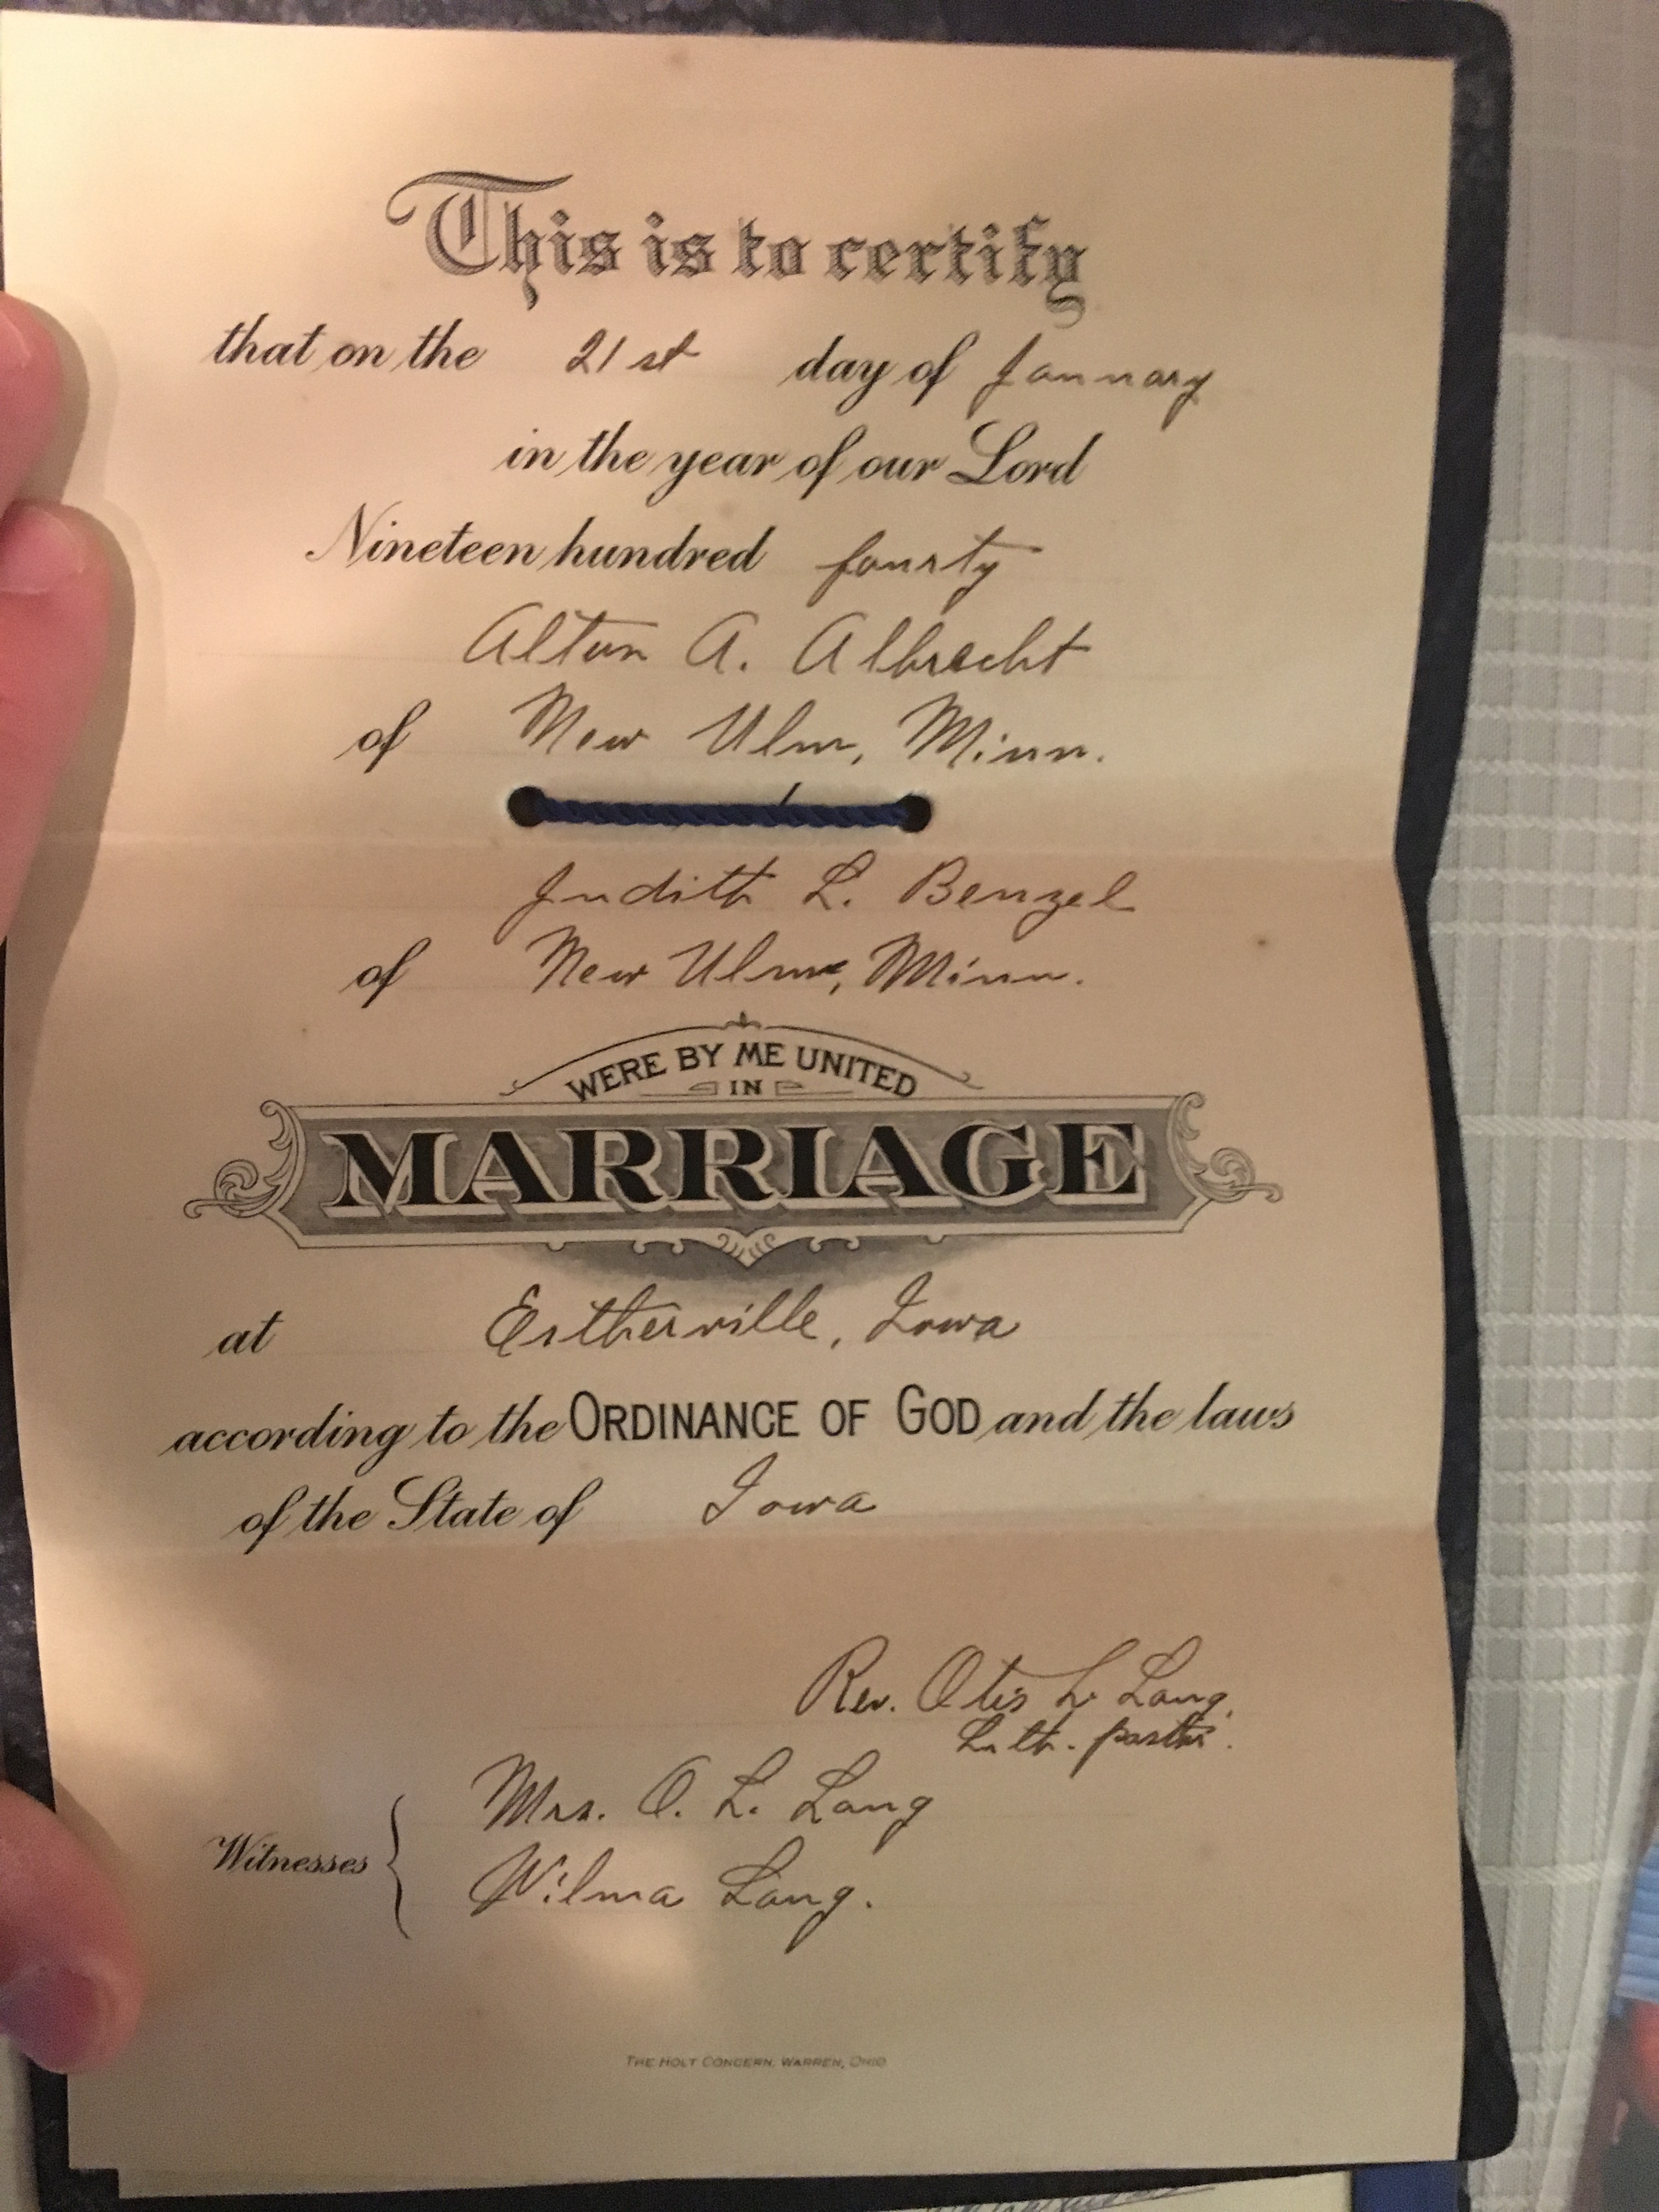 This is to certify
that on the 21st day of January
in the year of our Lord
Nineteen hundred fourty
Alton A. Albrecht
of New Ulm, Minn.
Judith L. Benzel
of New Ulm, Minn.
WERE BY ME UNITED
IN
MARRIAGE
at Estherville, Iowa
according to the ORDINANCE OF GOD and the laws
of the State of Iowa
Rev. Otis L. Lang,
Luth. pastor.
Mrs. O. L. Lang
Witnesses
Wilma Lang.
THE HOLT CONCERN, WARREN, OHIO